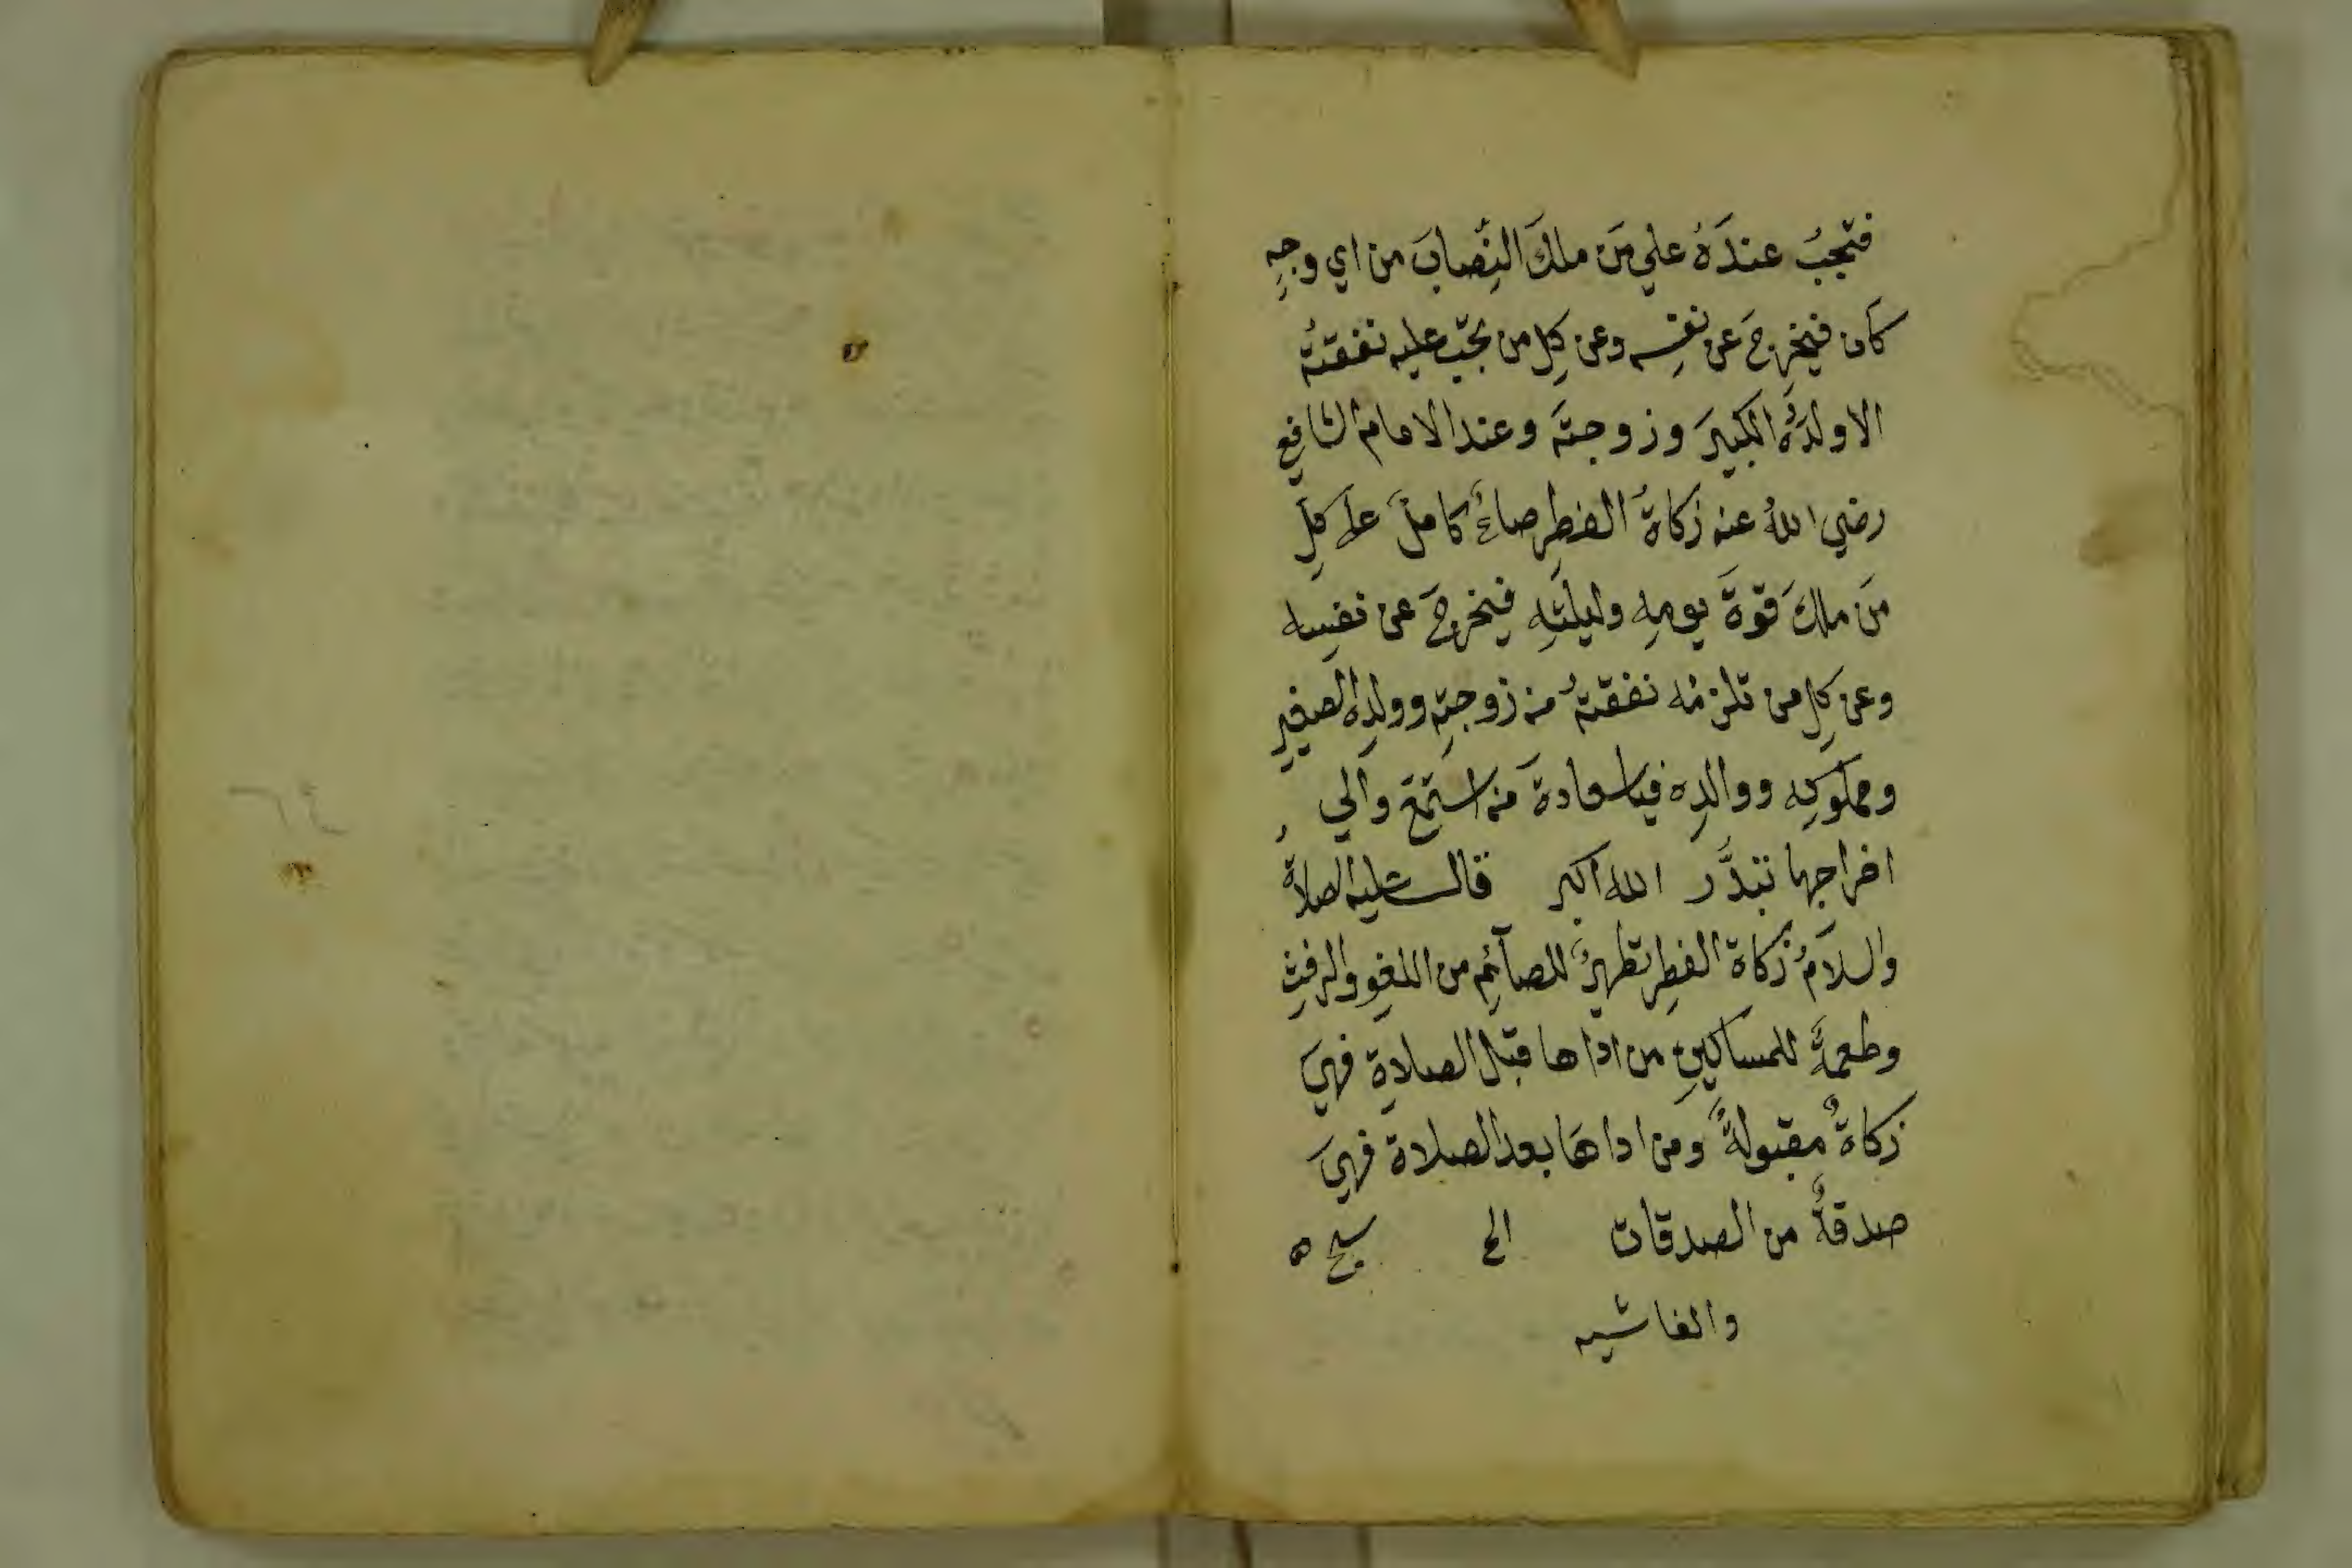 فتجبُ عندَهُ علي مَن ملكَ النِّصابَ من اي وجهٍ
كان فيخرِجَ عن نفسِه وعن كلِ من تجب عليه نفقتهُ
الا ولدَهُ الكبيرَ وزوجتَه وعند الامام الشافعِ
رضي اللهُ عنه زكاةُ الفطرِ صاعٌ كاملٌ علَي كلِ
مَن ملكَ قوةَ يومِه وليلتِه فيخرجَ عن نفسِه
وعن كلِ من تلزمُه نفقتهُ من زوجتِه وولدِه الصغيرِ
ومملوكِه ووالدِه فياسعادةَ من استمعَ والي
اخراجِها تبدَّر الله اكبر قال عليه الصلاةُ
والسلامُ زكاة الفطرِ تطهيرٌ للصآئمِ من اللغوِ والرفثِ
وطعمةً للمساكينِ من اداها قبل الصلاةِ فهيَ
زكاةٌ مقبولةٌ ومن اداهَا بعد الصلاة فهيَ
صدقةٌ من الصدقات الخ سبح ه
والغاشيه
٦٤